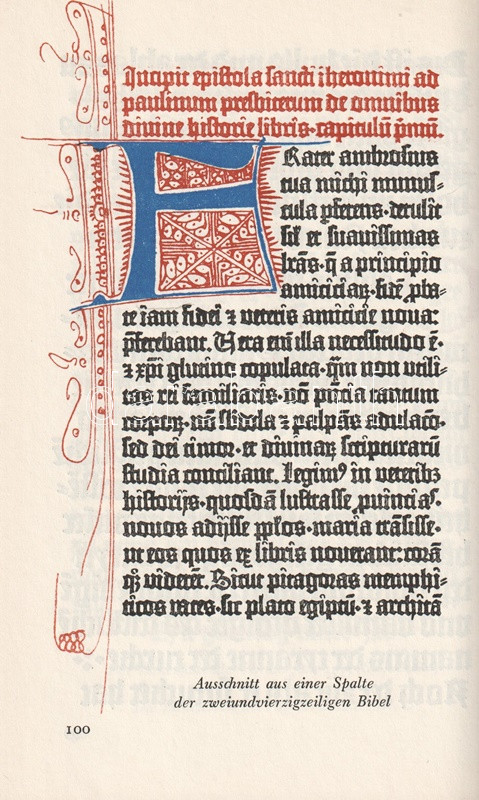 Incipit epistola sancti iheronimi ad
paulinum presbiterum de omnibus
divine historie libris· capitulū pͥmū.
Frater ambrosius
tua michi munus-
cula ꝑferens· detulit
sil̄ et suavissimas
lr̄as· q̄ a principio
amiciciaꝝ· fidē ꝓba-
te iam fidei ⁊ veteris amicicie nova:
p̄ferebant. Vera eni̅ illa necessitudo ē·
⁊ xp̄i glutino copulata· q̄m non utili-
tas rei familiaris· nō pn̄cia tantum
corpoꝝ· nō sb̄dola ⁊ palpās adulacō·
sed dei timor· et divinaꝝ scripturarū
studia conciliant. Legimꝰ in veteribꝫ
historijs· quosdā lustrasse ꝓvincias·
novos adijsse pp̄los· maria trāsisse·
ut eos quos ex libris noverant: corā
qꝫ viderēt. Sicut pitagoras memphi-
ticos vates· sic plato egiptū· ⁊ architā
Ausschnitt aus einer Spalte
der zweiundvierzigzeiligen Bibel
100